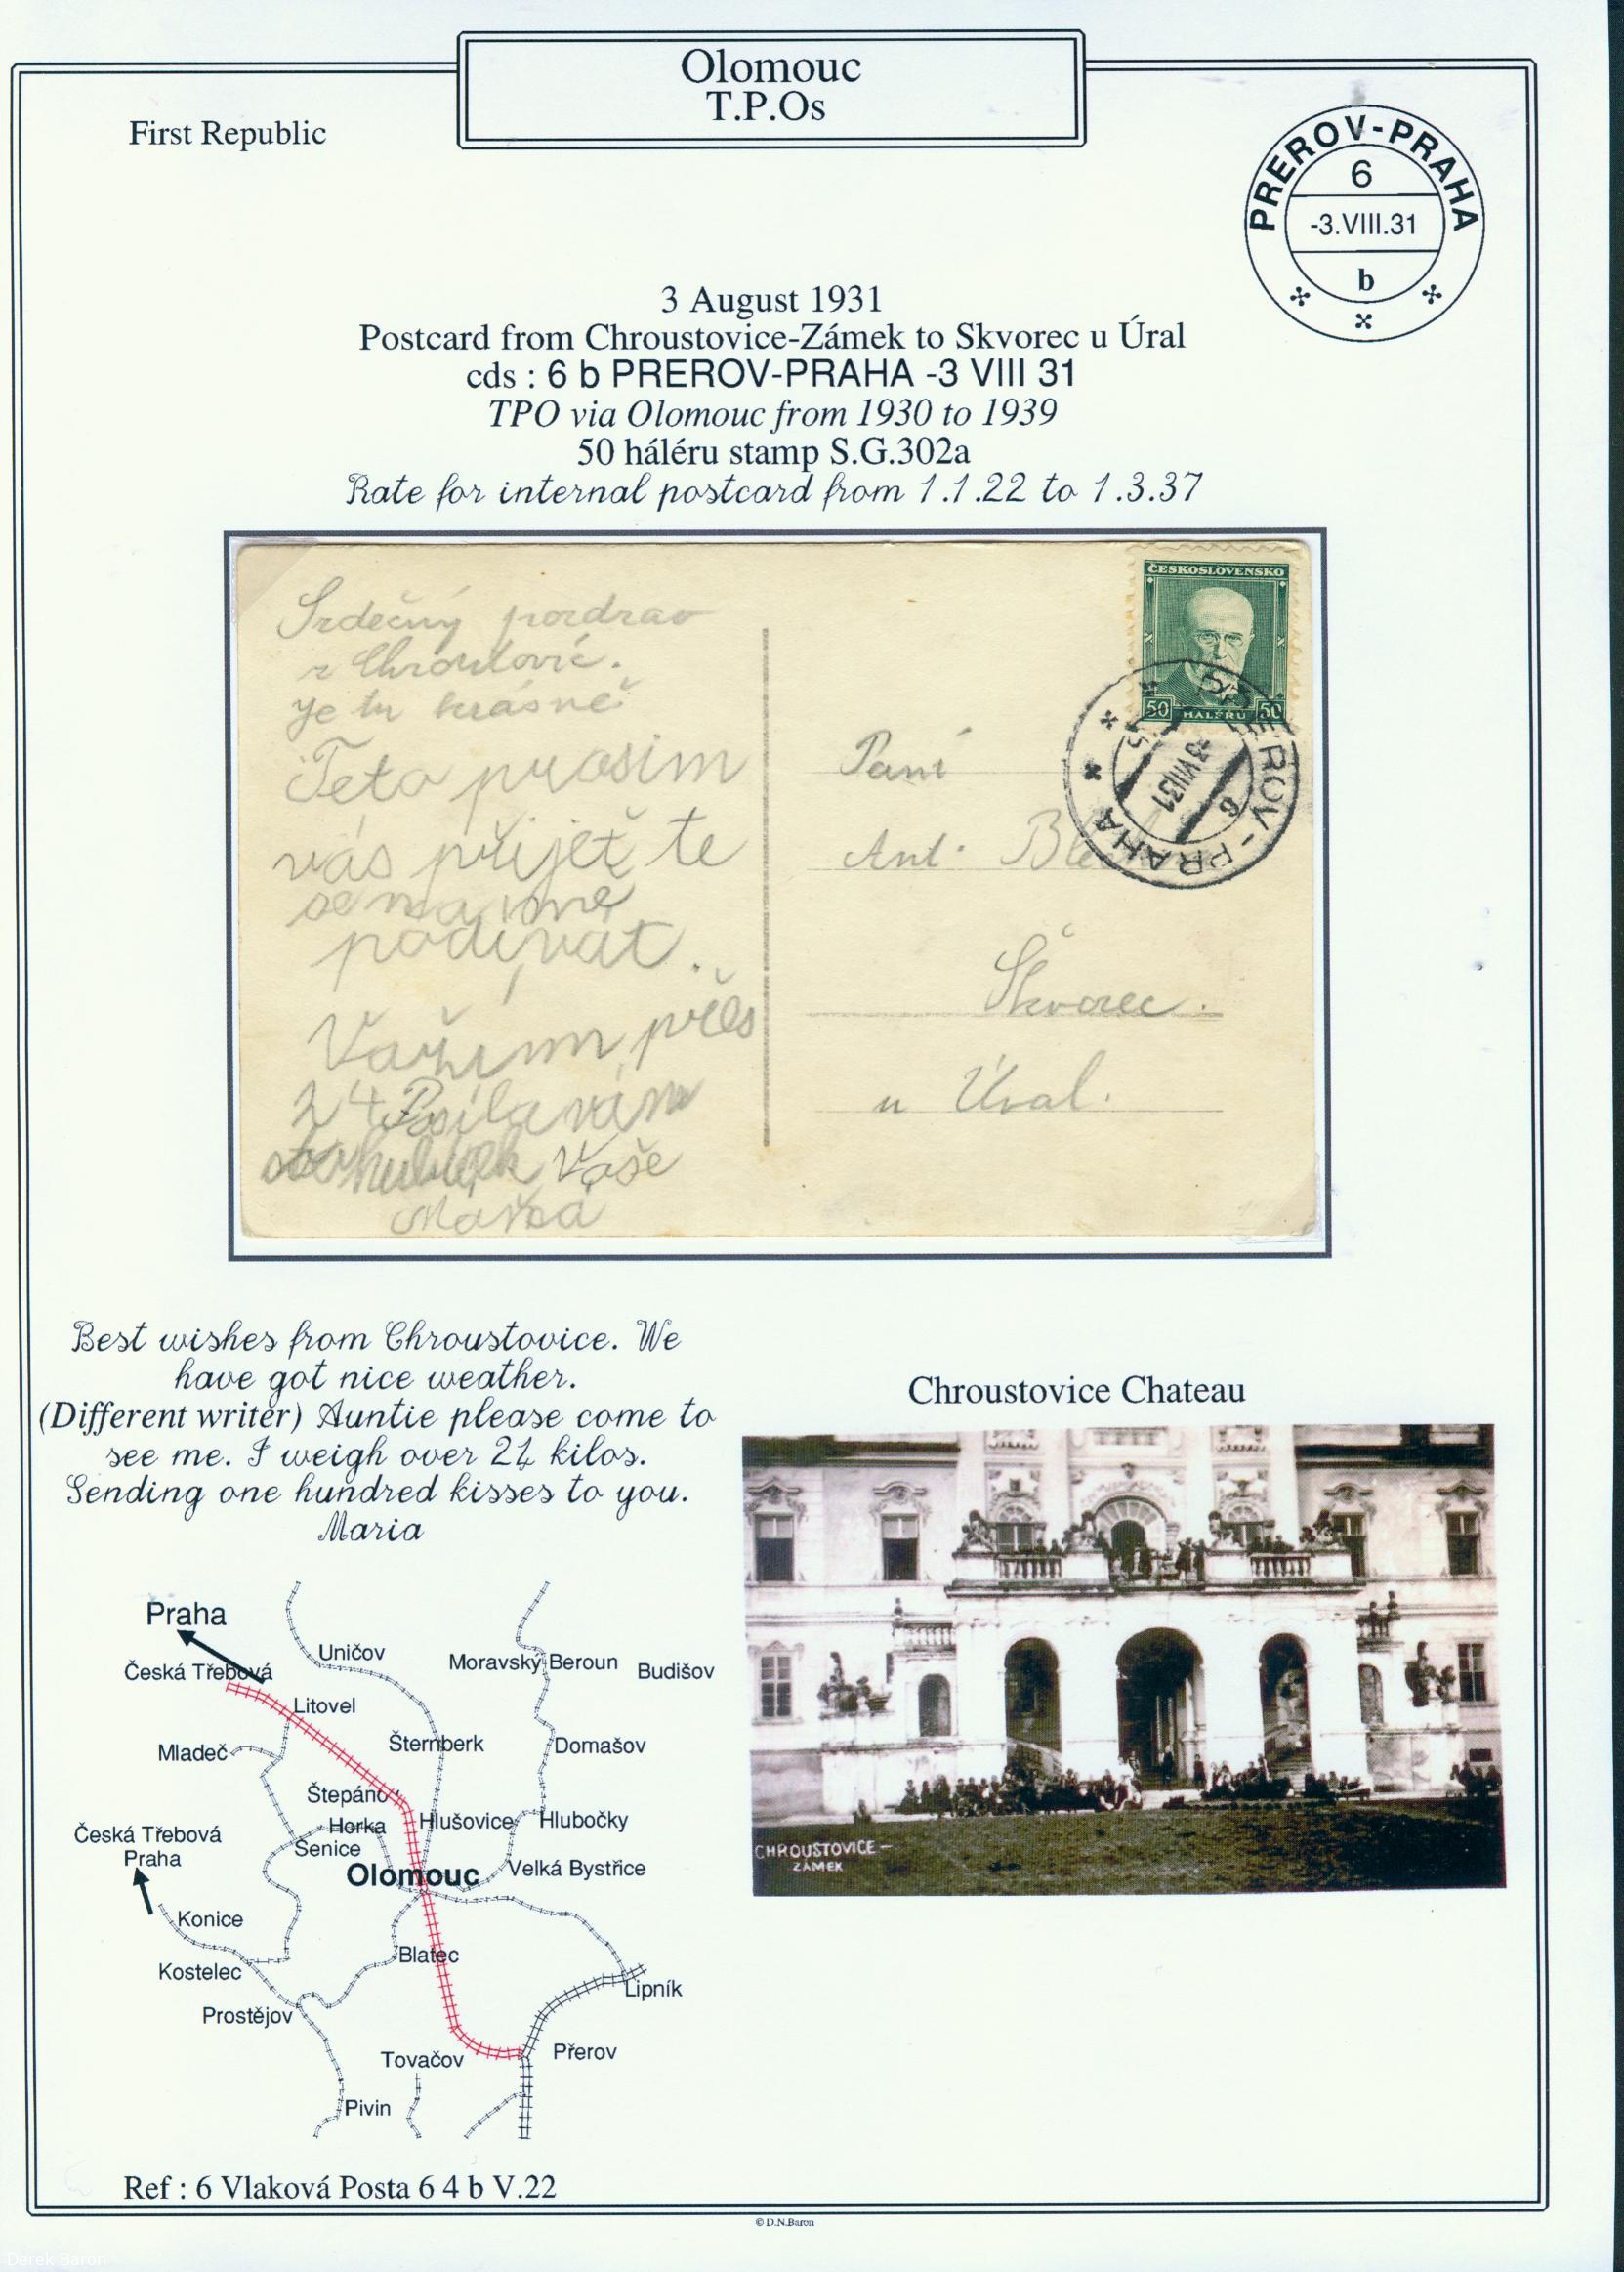 Olomouc
T.P.Os
First Republic
PREROV-PRAHA
6
-3.VIII.31
b
3 August 1931
Postcard from Chroustovice-Zámek to Skvorec u Úral
cds : 6 b PREROV-PRAHA -3 VIII 31
TPO via Olomouc from 1930 to 1939
50 háléru stamp S.G.302a
Rate for internal postcard from 1.1.22 to 1.3.37
Srdečný pozdrav
z Chroustovic.
Je tu krásně
Teto prosim
vás přijeť te
se na mně
podivat.
Vařim přes
24 Posila vám
sto hubiček Vaše
Mařka
ČESKOSLOVENSKO
50 HALÉRU 50
PREROV-PRAHA
6
-3.VIII31
Pani
Ant.
Škvorec.
u Úval.
Best wishes from Chroustovice. We
have got nice weather.
(Different writer) Auntie please come to
see me. I weigh over 24 kilos.
Sending one hundred kisses to you.
Maria
Chroustovice Chateau
CHROUSTOVICE –
ZÁMEK
Praha
Uničov
Moravský Beroun
Budišov
Česká Třebová
Litovel
Šternberk
Domašov
Mladeč
Štepáno
Horka
Hlušovice
Hlubočky
Česká Třebová
Praha
Senice
Olomouc
Velká Bystřice
Konice
Blatec
Kostelec
Lipník
Prostějov
Tovačov
Přerov
Pivin
Ref : 6 Vlaková Posta 6 4 b V.22
© D.N.Baron
Derek Baron